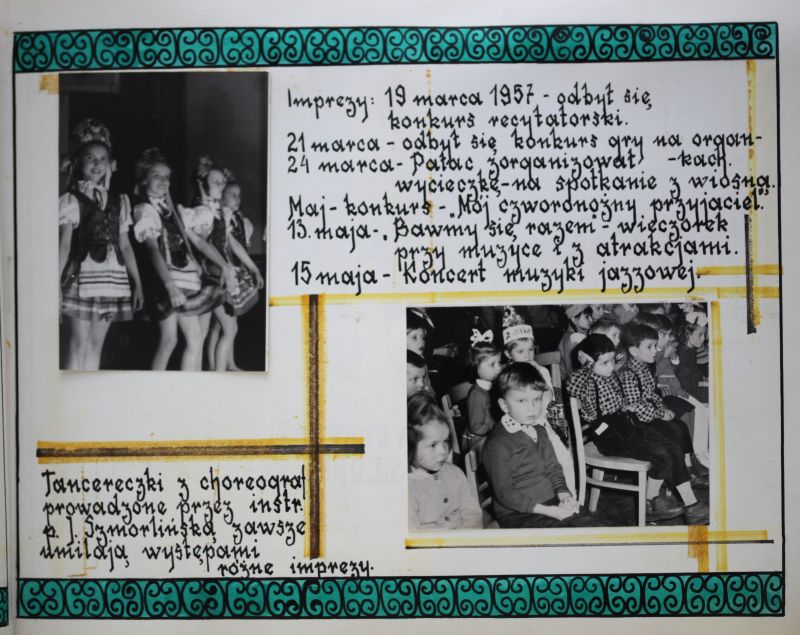 Imprezy: 19 marca 1957 - odbył się
konkurs recytatorski.
21 marca - odbył się konkurs gry na organ-
24 marca - Pałac zorganizował -kach.
wycieczkę - na spotkanie z wiosną.
Maj - konkurs - „Mój czworonożny przyjaciel."
13. maja - „Bawmy się razem" - wieczorek
przy muzyce i z atrakcjami.
15 maja - Koncert muzyki jazzowej.
Tancereczki z choreograf
prowadzone przez instr.
p. J Szmorlińską zawsze
umilają występami
różne imprezy.